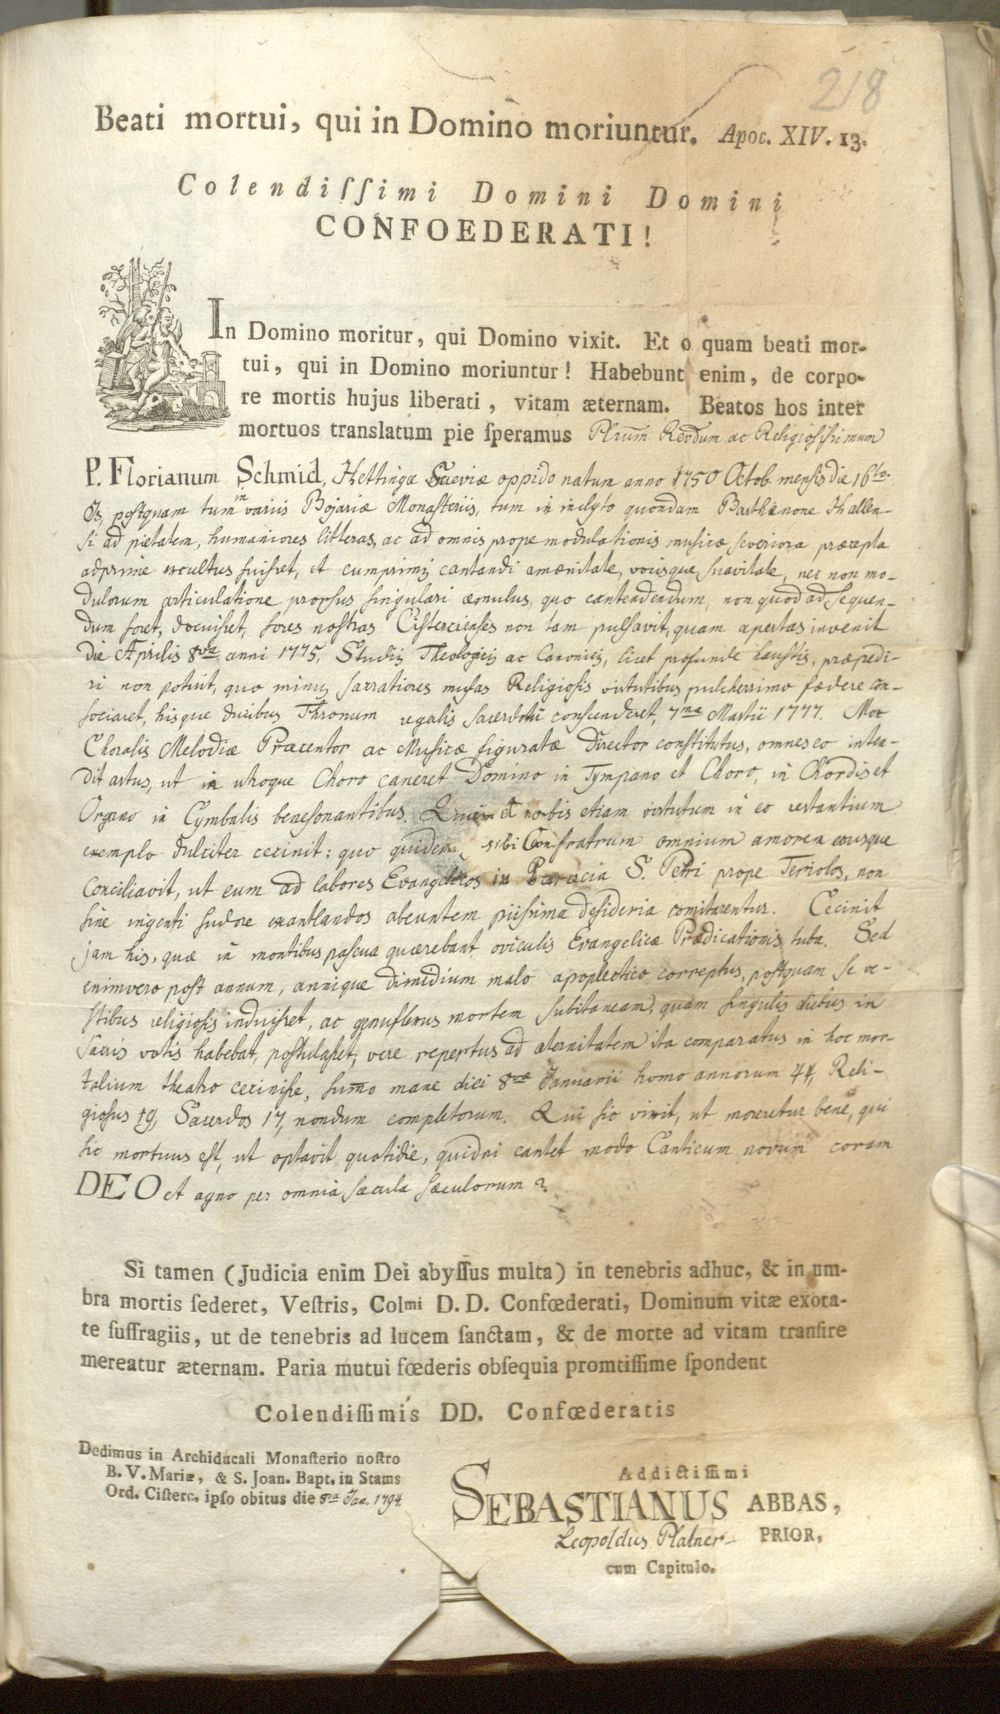 218
Beati mortui, qui in Domino moriuntur. Apoc. XIV. 13.
Colendiſſimi Domini Domini
CONFOEDERATI!
In Domino moritur, qui Domino vixit. Et o quam beati mor-
tui, qui in Domino moriuntur! Habebunt enim, de corpo-
re mortis hujus liberati, vitam æternam. Beatos hos inter
mortuos translatum pie ſperamus Plrum Revdum ac Religiosiſsimum
P. Florianum Schmid, Hettingæ Sueviæ oppido natum anno 1750 Octob. mensis die 16to.
Is, poſtquam tum in variis Bojariæ Monaſteriis, tum in inclyto quondam Parthenone Hallen-
ſi ad pietatem, humaniores litteras, ac ad omnis prope modulationis muſicæ ſeveriora præcepta
adprime excultus fuiſset, et cumprimis cantandi amænitate, vocisque ſuavitate, nec non mo-
dulorum articulatione prorſus ſingulari æmulus, quo contendendum, non quod ad ſequen-
dum foret, docuiſset, fores noſtras Ciſtercienſes non tam pulſavit, quam apertas invenit
die Aprilis 8va anni 1775. Studiis Theologicis ac Canonicis, licet profunde hauſtis, præpedi-
ri non potuit, quo minus ſacratiores muſas Religioſis virtutibus pulcherrimo fædere con-
ſociaret, hisque ducibus Thronum regalis Sacerdotii conſcenderet, 7ma Martii 1777. Mox
Choralis Melodiæ Præcentor ac Muſicæ figuratæ Director conſtitutus, omnes eo inten-
dit artus, ut in utroque Choro caneret Domino in Tympano et Choro, in Chordis et
Organo in Cymbalis beneſonantibus. Quin et nobis etiam virtutum in eo certantium
exemplo dulciter cecinit: quo quidem sibi Confratrum omnium amorem eousque
conciliavit, ut eum ad labores Evangelicos in Paræcia S. Petri prope Teriolos, non
ſine ingenti ſudore exantlandos abeuntem piiſsima deſideria comitarentur. Cecinit
jam his, quæ in montibus paſcua quærebant, oviculis Evangelicæ Prædicationis tuba. Sed
enimvero poſt annum, annique dimidium malo apoplectico correptus, poſtquam ſe ve-
ſtibus religioſis induiſset, ac genuflexus mortem ſubitaneam, quam ſingulis diebus in
Sacris votis habebat, poſtulaſset, vere repertus ad æternitatem ita comparatus in hoc mor-
talium theatro ceciniſse, ſumo mane diei 8væ Januarii homo annorum 44, Reli-
gioſus 19, Sacerdos 17, nondum completorum. Qui ſic vixit, ut moreretur bene, qui
ſic mortuus eſt, ut optavit quotidie, quidni cantet modo Canticum novum coram
DEO et agno per omnia ſæcula ſæculorum?
Si tamen (Judicia enim Dei abyſſus multa) in tenebris adhuc, & in um-
bra mortis ſederet, Veſtris, Colmi D. D. Confœderati, Dominum vitæ exora-
te ſuffragiis, ut de tenebris ad lucem ſanctam, & de morte ad vitam tranſire
mereatur æternam. Paria mutui fœderis obſequia promtiſſime ſpondent
Colendiſſimis DD. Confœderatis
Dedimus in Archiducali Monaſterio noſtro
B. V. Mariæ, & S. Joan. Bapt. in Stams
Ord. Ciſterc. ipſo obitus die 8va Jan. 1794.
Addictiſſimi
SEBASTIANUS ABBAS,
Leopoldus Platner PRIOR,
cum Capitulo.